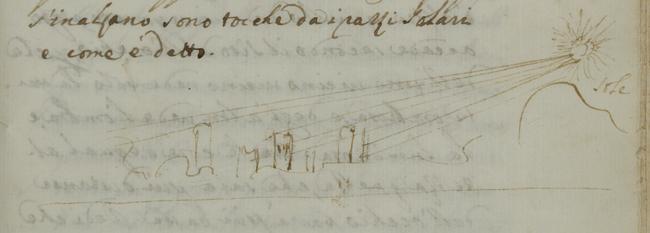 s'inalzano sono tocche da i razzi Solari
e come è detto.
sole